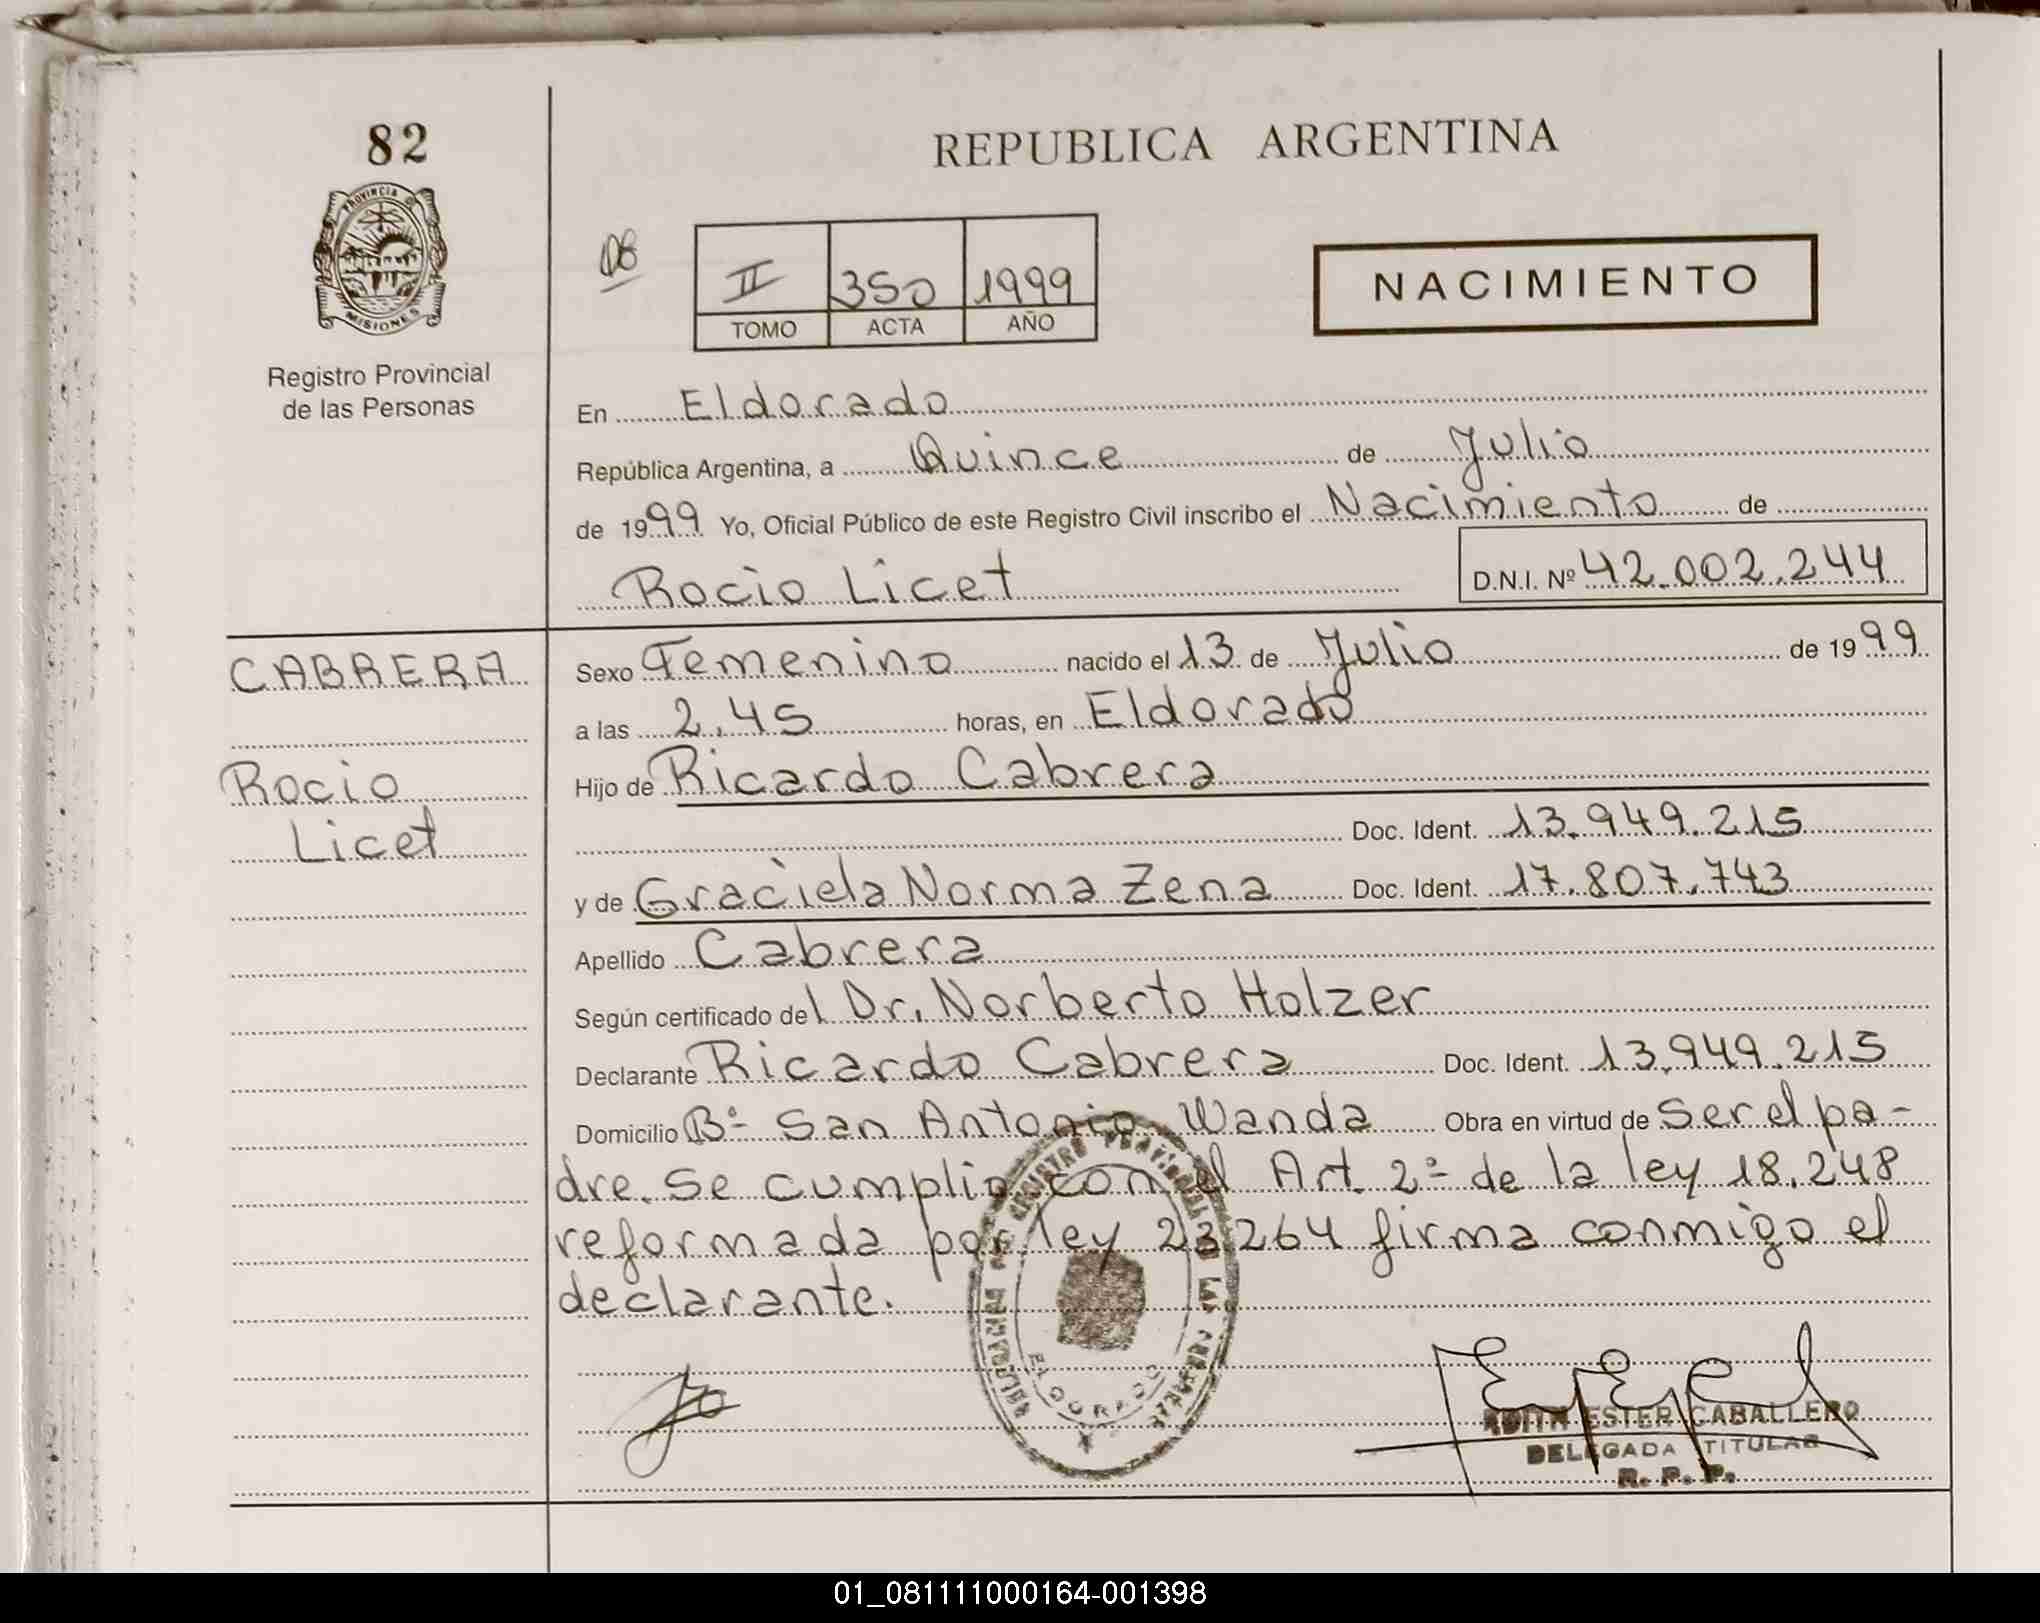 82
REPUBLICA ARGENTINA
PROVINCIA
MISIONES
08
II 350 1999
TOMO ACTA AÑO
NACIMIENTO
Registro Provincial
de las Personas
En Eldorado
República Argentina, a Quince de Julio
de 1999 Yo, Oficial Público de este Registro Civil inscribo el Nacimiento de
Rocio Licet D.N.I. Nº 42.002.244
CABRERA
Rocio
Licet
Sexo Femenino nacido el 13 de Julio de 1999
a las 2.45 horas, en Eldorado
Hijo de Ricardo Cabrera
Doc. Ident. 13.949.215
y de Graciela Norma Zena Doc. Ident. 17.807.743
Apellido Cabrera
Según certificado del Dr. Norberto Holzer
Declarante Ricardo Cabrera Doc. Ident. 13.949.215
Domicilio Bº San Antonio Wanda Obra en virtud de ser el pa-
dre. Se cumplio con el Art. 2º de la ley 18.248
reformada por ley 23264 firma conmigo el
declarante.
REGISTRO PROVINCIAL DE LAS PERSONAS
ELDORADO
ESTER CABALLERO
DELEGADA TITULAR
R. P. P.
01_081111000164-001398